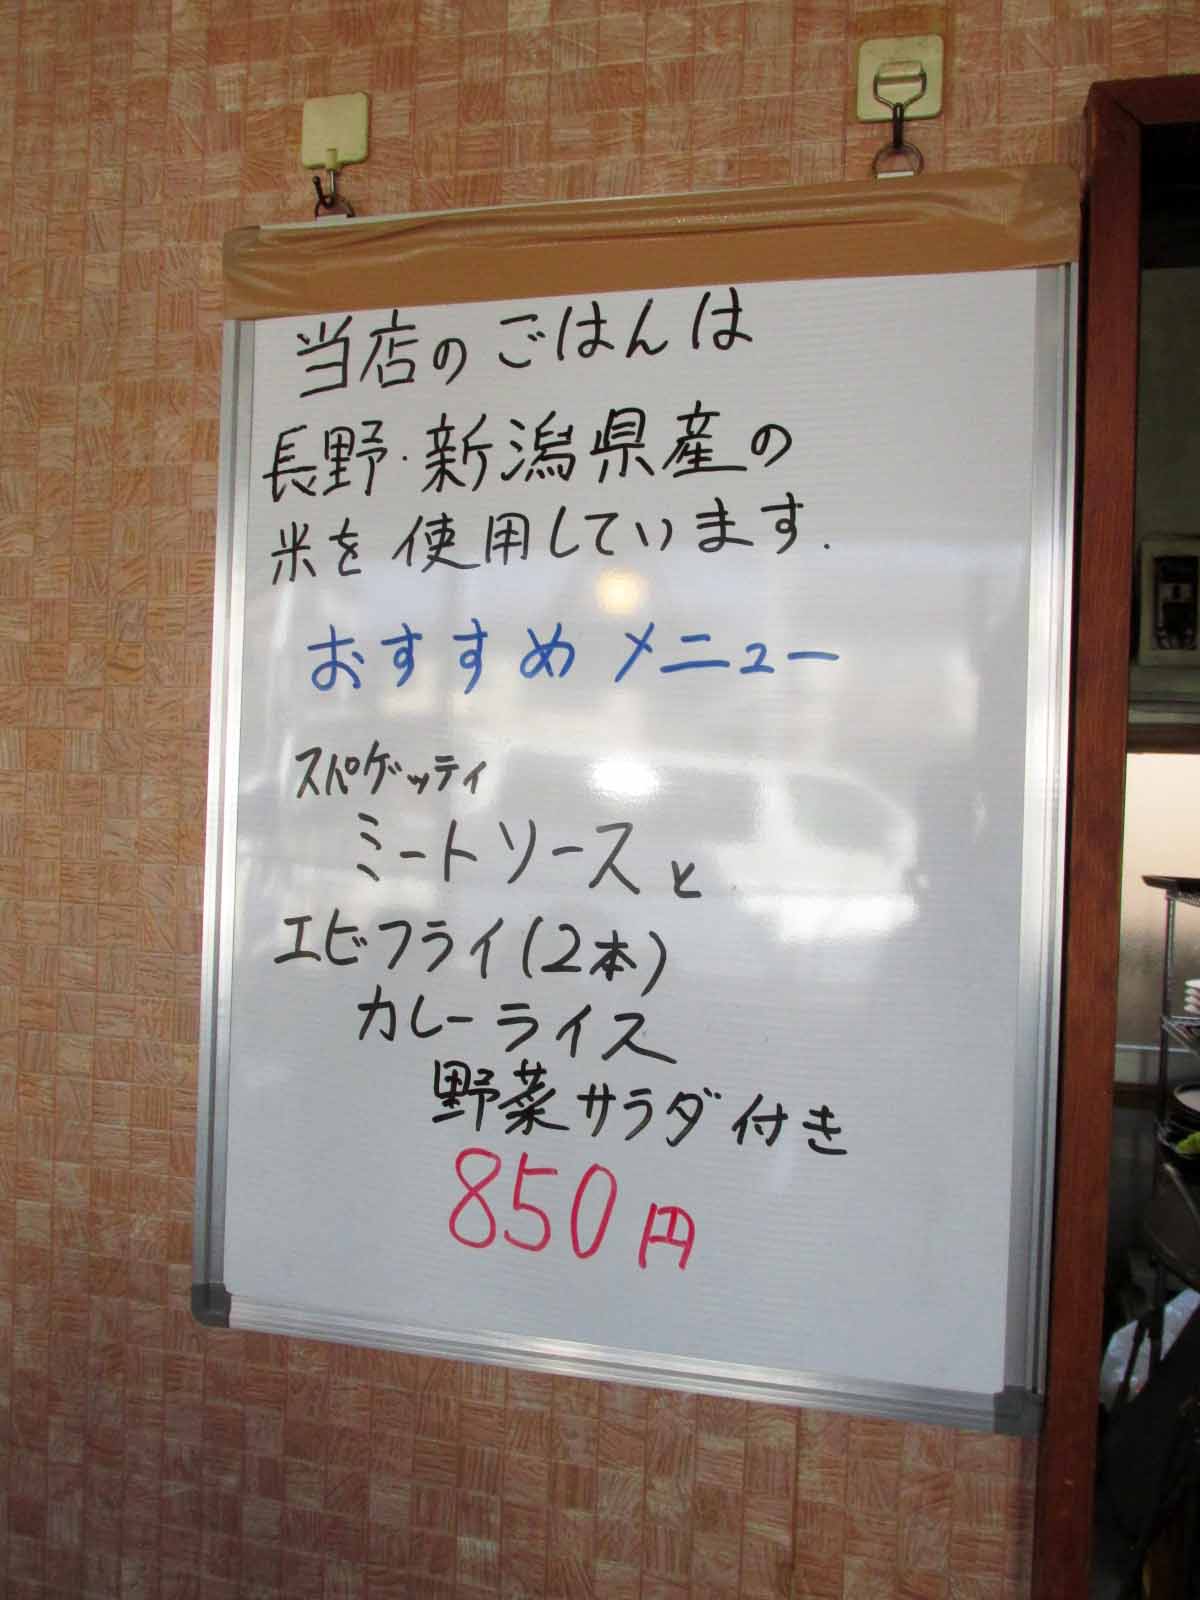 当店のごはんは
長野・新潟県産の
米を使用しています.
おすすめメニュー
スパゲッティ
ミートソースと
エビフライ(2本)
カレーライス
野菜サラダ付き
850円